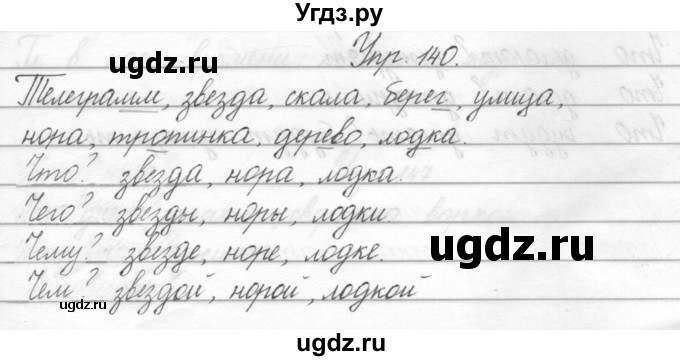 Угдз.ру
Упр. 140.
Телеграмм, звезда, скала, берег, улица,
нора, тропинка, дерево, лодка.
Что? звезда, нора, лодка.
Чего? звезды, норы, лодки
Чему? звезде, норе, лодке.
Чем? звездой, норой, лодкой
ugdz.ru
ugdz.ru
ugdz.ru
ugdz.ru